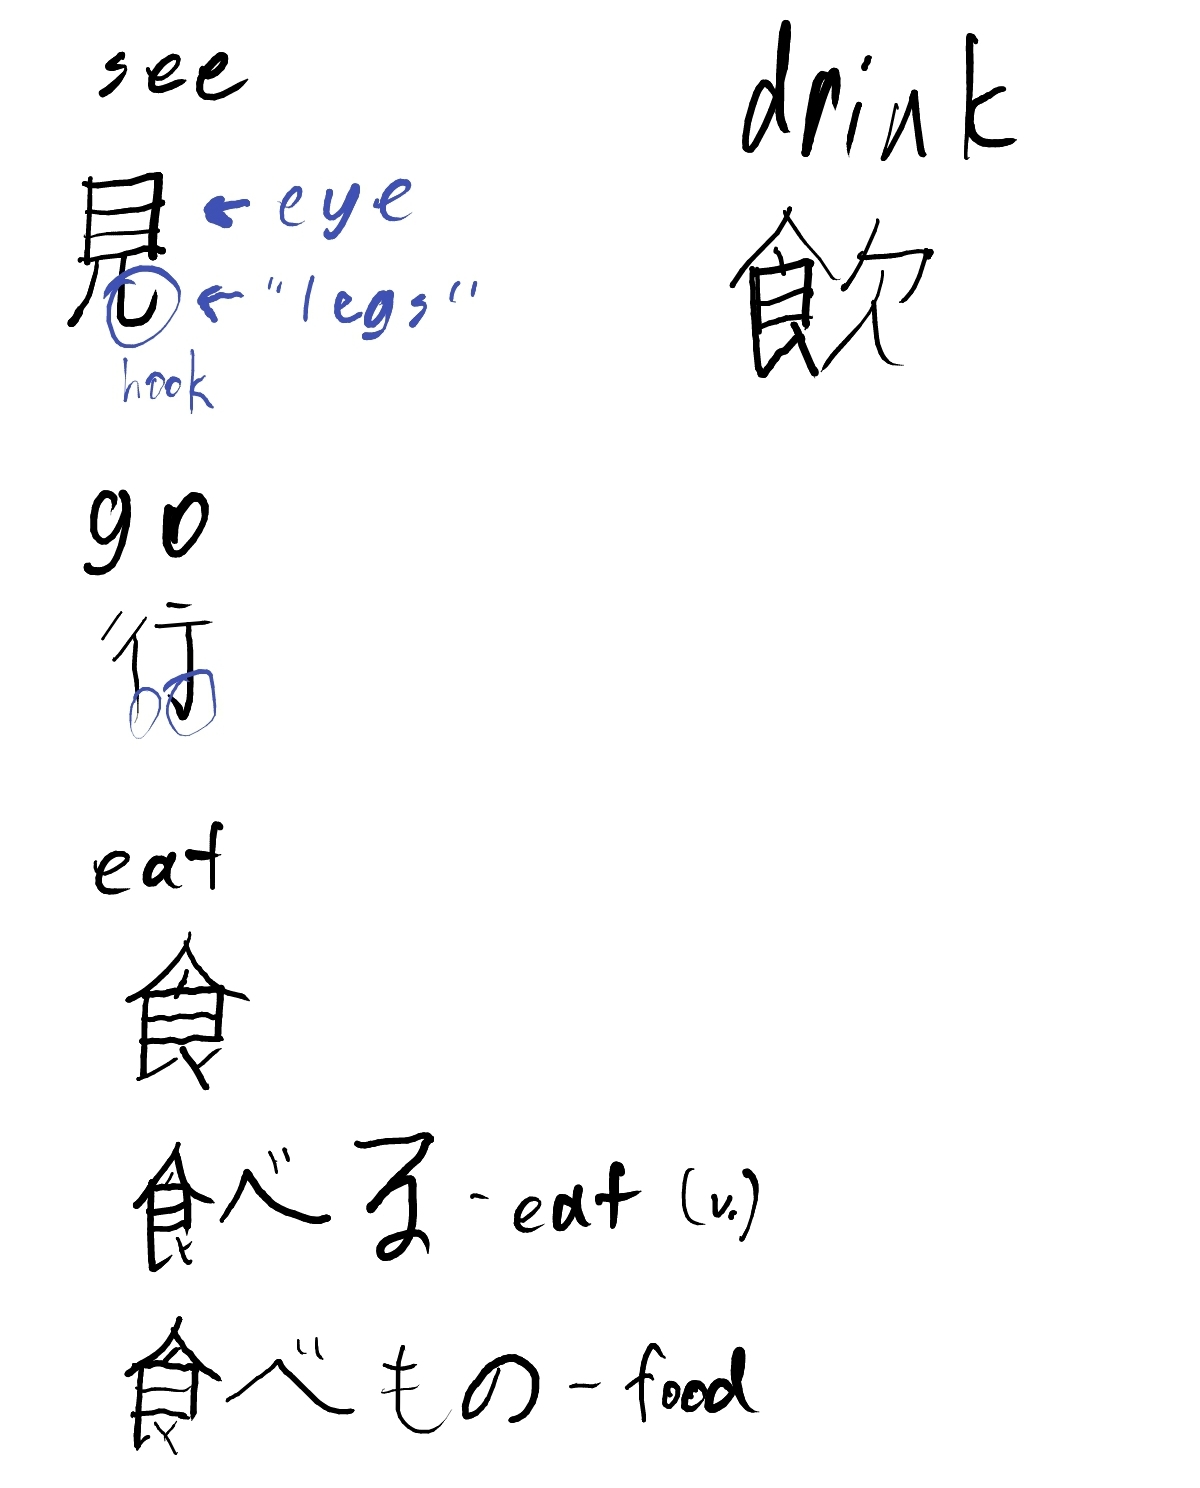 see
見 ← eye
← "legs"
hook
go
行
eat
食
食べる - eat (v.)
食べもの - food
drink
飲